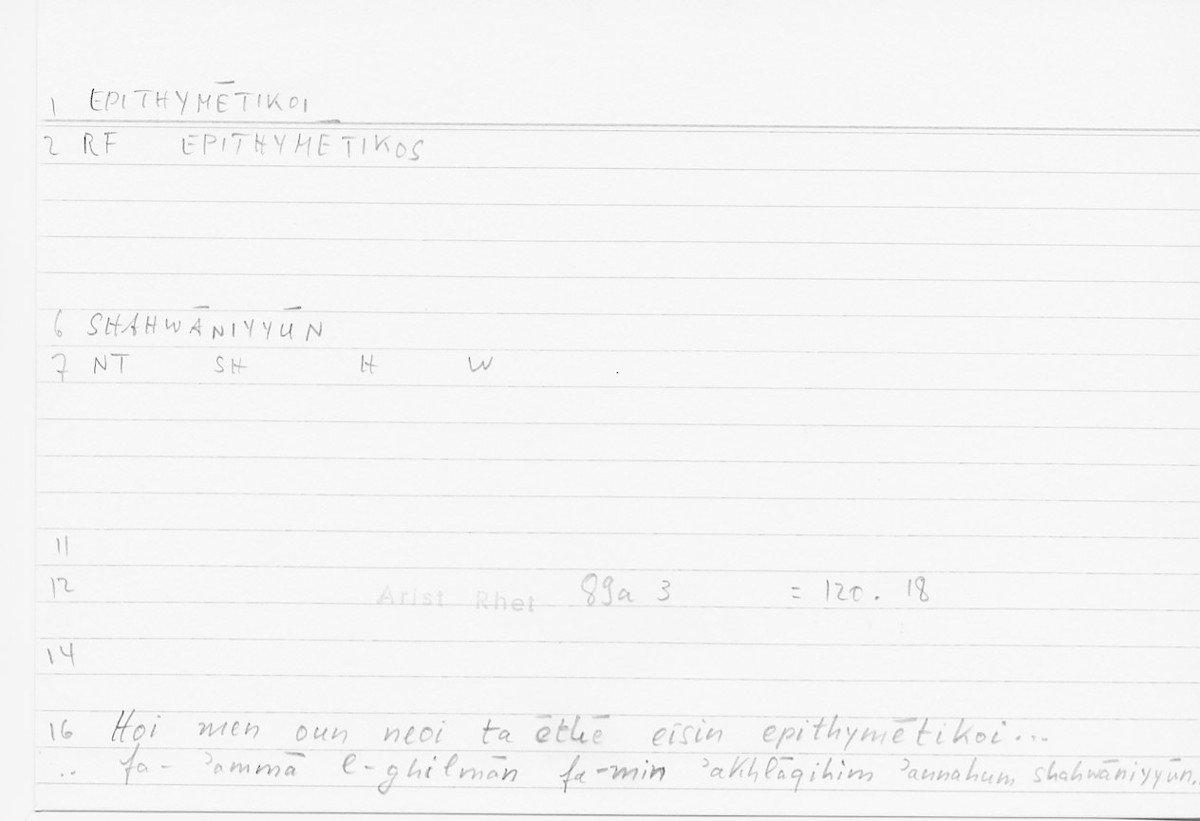 1 EPITHYMĒTIKOI
2 RF EPITHYMETIKOS
6 SHAHWĀNIYYŪN
7 NT SH H W
11
12 Arist Rhet 89a 3 = 120. 18
14
16 Hoi men oun neoi ta ēthē eisin epithymētikoi...
.. fa- ʾammā l-ghilmān fa-min ʾakhlāqihim ʾannahum shahwāniyyūn..